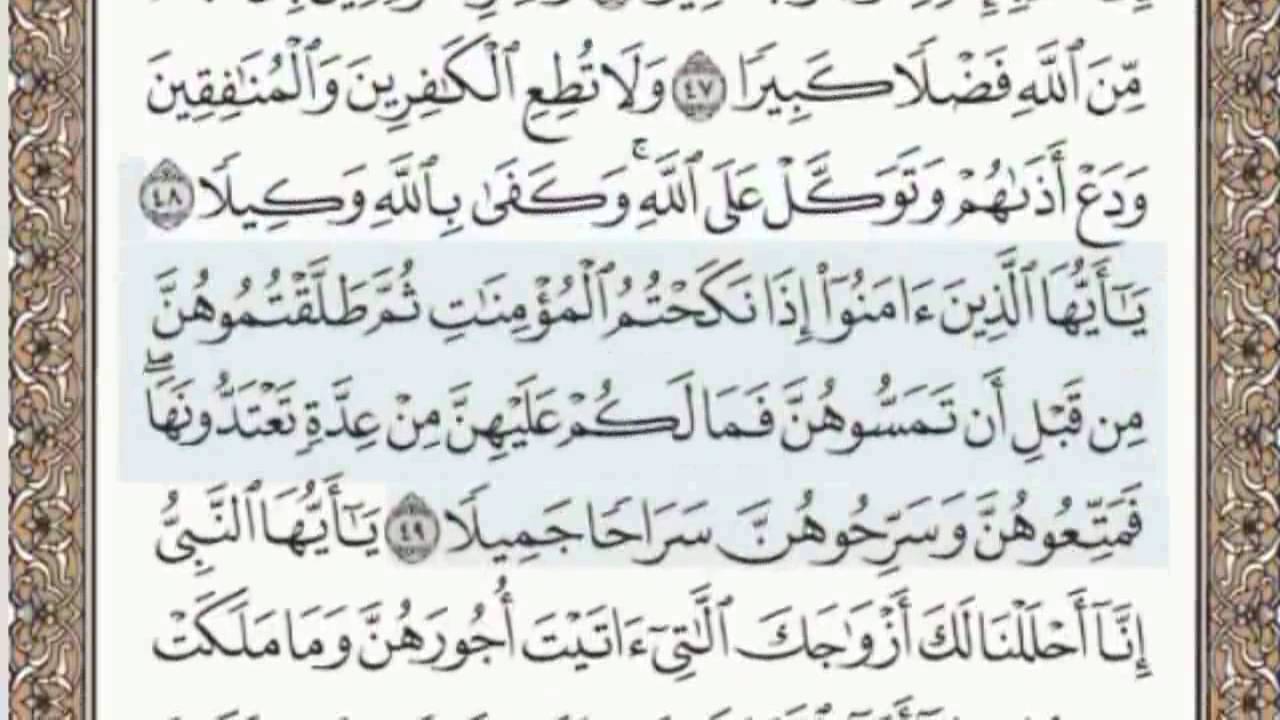 مِّنَ ٱللَّهِ فَضۡلًا كَبِيرًا ٤٧ وَلَا تُطِعِ ٱلۡكَٰفِرِينَ وَٱلۡمُنَٰفِقِينَ
وَدَعۡ أَذَىٰهُمۡ وَتَوَكَّلۡ عَلَى ٱللَّهِۚ وَكَفَىٰ بِٱللَّهِ وَكِيلًا ٤٨
يَٰٓأَيُّهَا ٱلَّذِينَ ءَامَنُوٓاْ إِذَا نَكَحۡتُمُ ٱلۡمُؤۡمِنَٰتِ ثُمَّ طَلَّقۡتُمُوهُنَّ
مِن قَبۡلِ أَن تَمَسُّوهُنَّ فَمَا لَكُمۡ عَلَيۡهِنَّ مِنۡ عِدَّةٖ تَعۡتَدُّونَهَاۖ
فَمَتِّعُوهُنَّ وَسَرِّحُوهُنَّ سَرَاحٗا جَمِيلٗا ٤٩ يَٰٓأَيُّهَا ٱلنَّبِيُّ
إِنَّآ أَحۡلَلۡنَا لَكَ أَزۡوَٰجَكَ ٱلَّٰتِيٓ ءَاتَيۡتَ أُجُورَهُنَّ وَمَا مَلَكَتۡ